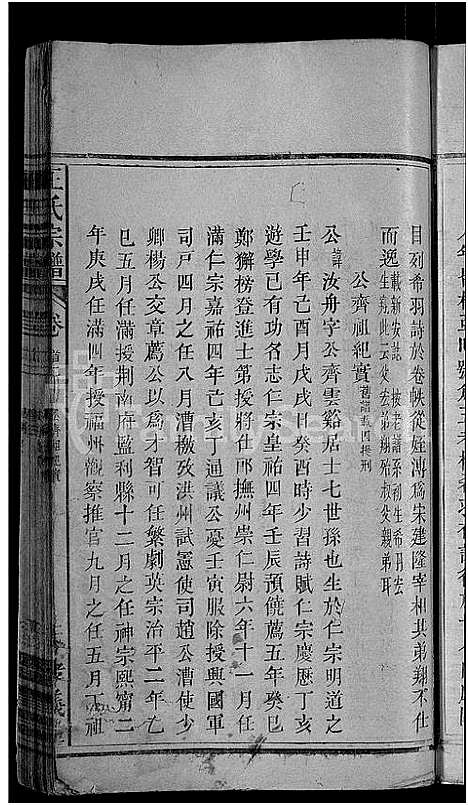 目列希羽詩於卷帙從姪溥爲宋建隆宰相其弟翔不仕
而逸載新安誌 按老譜系初生希羽宏
羽生翔此云從弟翔殆叔父親弟耳
公齊祖紀實舊譜載四提刑
公諱汝舟字公齊雲谿居士七世孫也生於仁宗明道之
壬申年己酉月戌戌日癸酉時少習詩賦仁宗慶歷丁亥
遊學已有功名志仁宗皇祐四年壬辰預僊薦五年癸巳
鄭獬榜登進士第授將仕郎撫州崇仁尉六年十一月任
滿仁宗嘉祐四年己亥丁通議公憂壬寅服除授興國軍
司戸四月之任八月漕檄攷洪州試憲使司趙公漕使少
卿楊公交章薦公以爲才智可任繁劇英宗治平二年乙
巳五月任滿授荆南府監利縣十二月之任神宗熙甯二
年庚戌任滿四年授福州觀察推官九月之任五月丁祖
王氏宗譜 卷首